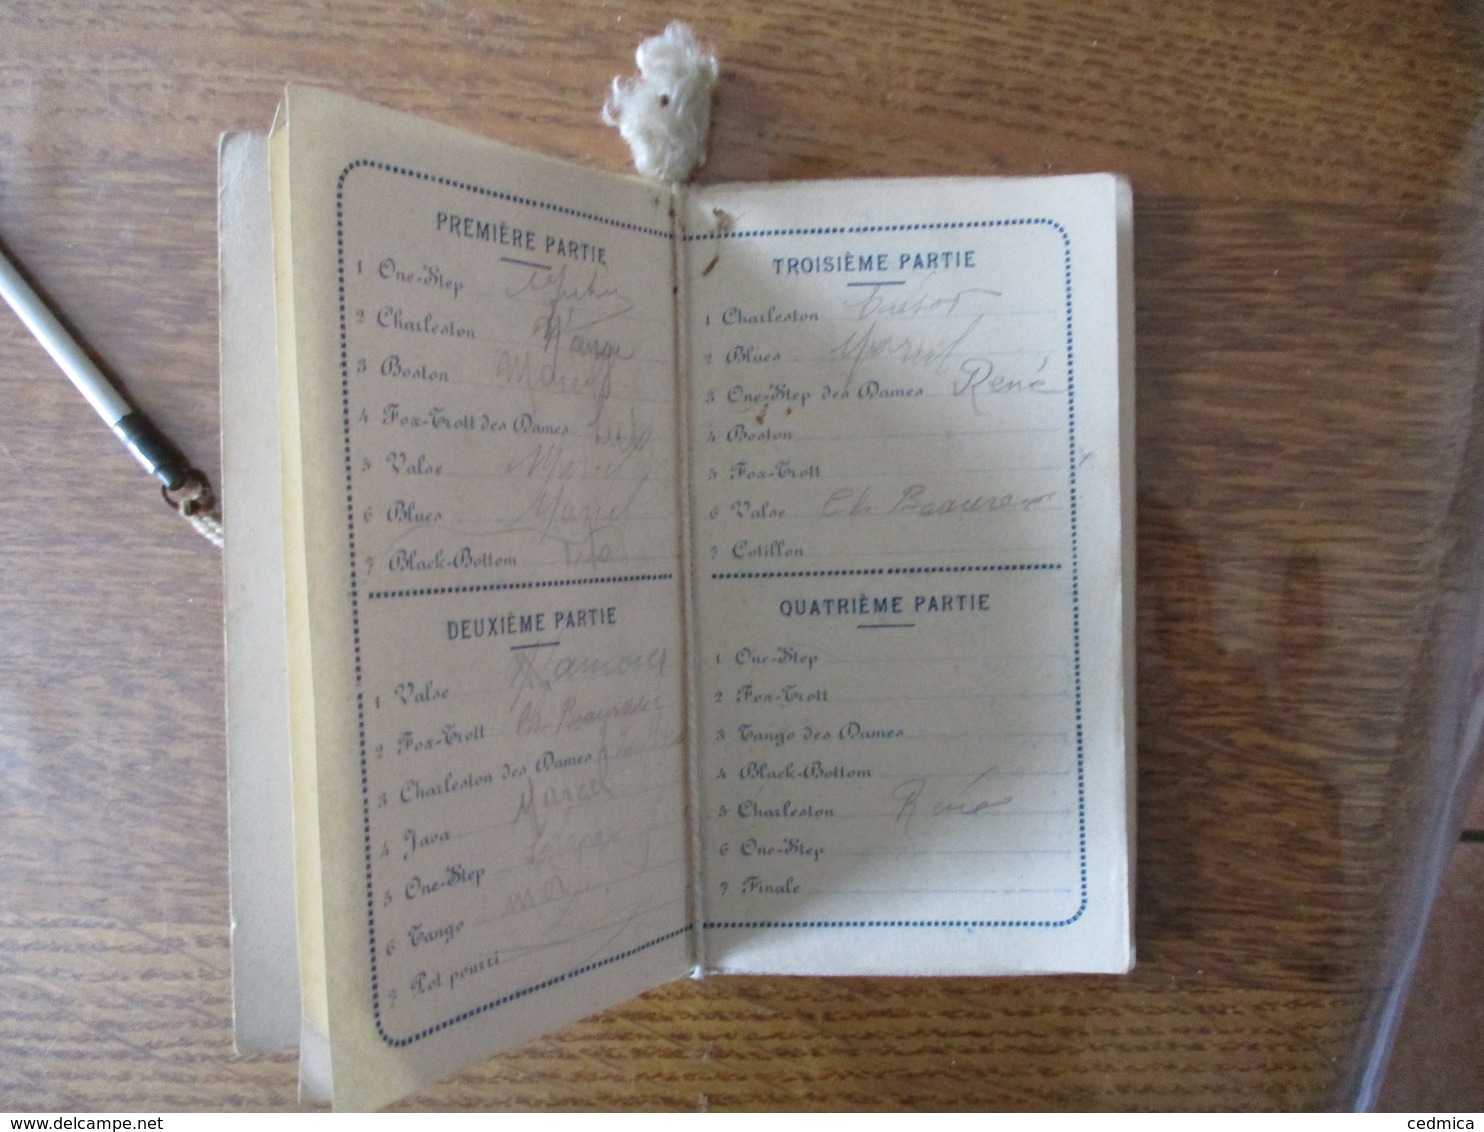 PREMIÈRE PARTIE
1 One-Step
2 Charleston
3 Boston Marcel
4 Fox-Trott des Dames
5 Valse Marcel
6 Blues Marcel
7 Black-Bottom
DEUXIÈME PARTIE
1 Valse
2 Fox-Trott Ch. Beauravoir
3 Charleston des Dames
4 Java Marcel
5 One-Step
6 Tango
7 Pot pourri
TROISIÈME PARTIE
1 Charleston
2 Blues Marcel
3 One-Step des Dames René
4 Boston
5 Fox-Trott
6 Valse Ch.
7 Cotillon
QUATRIÈME PARTIE
1 One-Step
2 Fox-Trott
3 Tango des Dames
4 Black-Bottom
5 Charleston René
6 One-Step
7 Finale
cedmica